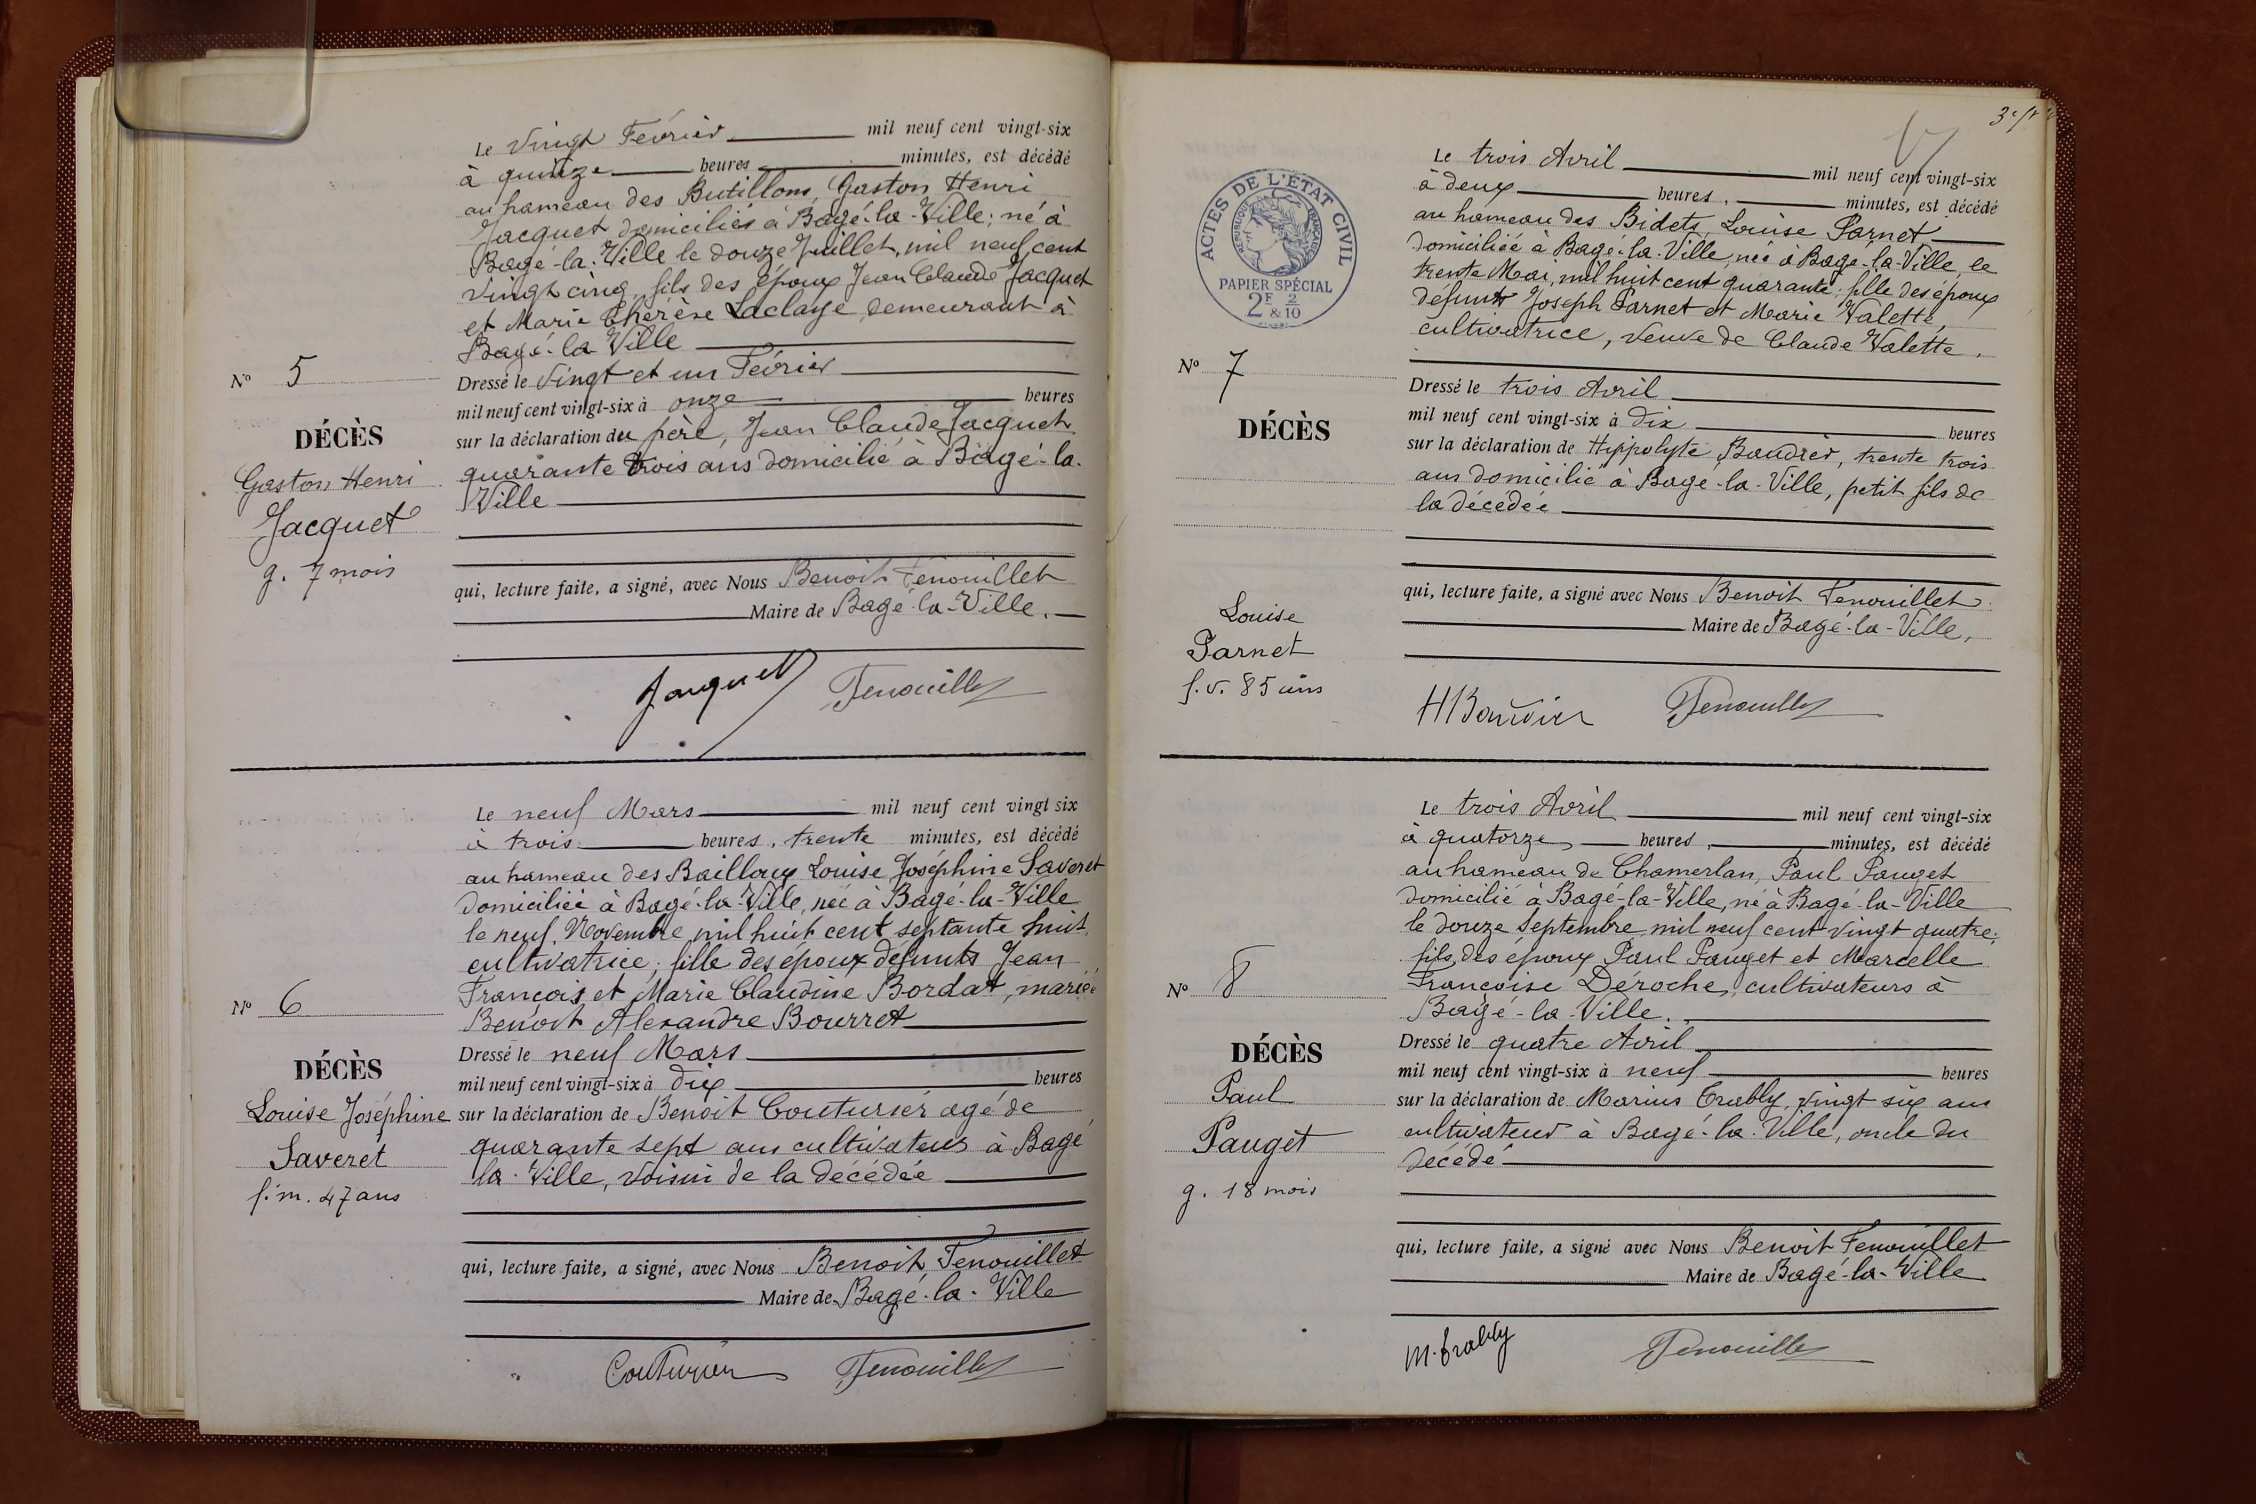 Le Vingt Février mil neuf cent vingt-six
à quinze heures minutes, est décédé
au hameau des Butillons, Gaston Henri
Jacquet domiciliés à Bâgé-la-Ville; né à
Bâgé-la-Ville le douze Juillet, mil neuf cent
vingt cinq, fils des époux Jean Claude Jacquet
et Marie Thérèse Laclaye demeurant à
Bagé-la-Ville
Nº 5
DÉCÈS
Gaston Henri
Jacquet
g. 7 mois
Dressé le Vingt et un Février
mil neuf cent vingt-six à onze heures
sur la déclaration du père, Jean Claude Jacquet
quarante trois ans domicilié à Bâgé-la-
Ville
qui, lecture faite, a signé, avec Nous Benoit Fenouillet
Maire de Bagé-la-Ville.
Jacquet Fenouillet
Le neuf Mars mil neuf cent vingt six
à trois heures, trente minutes, est décédé
au hameau des Bailloux Louise Joséphine Saveret
domiciliée à Bagé-la-Ville, née à Bagé-la-Ville
le neuf Novembre mil huit cent septante huit,
cultivatrice; fille des époux défunts Jean
François et Marie Claudine Bordat, mariée
Benoit Alexandre Bourret
Nº 6
DÉCÈS
Louise Joséphine
Saveret
f. m. 47 ans
Dressé le neuf Mars
mil neuf cent vingt-six à dix heures
sur la déclaration de Benoit Couturier agé de
quarante sept ans cultivateur à Bagé
la-Ville, voisin de la décédée
qui, lecture faite, a signé, avec Nous Benoit Fenouillet
Maire de Bagé-la-Ville
Couturier Fenouillet
ACTES DE L'ÉTAT CIVIL
RÉPUBLIQUE FRANÇAISE
PAPIER SPÉCIAL
2F 2
& 10
Le trois Avril mil neuf cent vingt-six
à deux heures, minutes, est décédé
au hameau des Bidets, Louise Parnet
domiciliée à Bagé-la-Ville, née à Bagé-la-Ville, le
trente Mai, mil huit cent quarante; fille des époux
défunts Joseph Parnet et Marie Valette,
cultivatrice, veuve de Claude Valette.
Nº 7
DÉCÈS
Louise
Parnet
f. v. 85 ans
Dressé le trois Avril
mil neuf cent vingt-six à dix heures
sur la déclaration de Hippolyte Baudier, trente trois
ans domicilié à Bagé-la-Ville, petit fils de
la décédée
qui, lecture faite, a signé avec Nous Benoit Fenouillet
Maire de Bagé-la-Ville,
H Baudier Fenouillet
Le trois Avril mil neuf cent vingt-six
à quatorze heures, minutes, est décédé
au hameau de Chamerlan, Paul Pauget
domicilié à Bagé-la-Ville, né à Bagé-la-Ville
le douze Septembre mil neuf cent vingt quatre;
fils des époux Paul Pauget et Marcelle
Françoise Déroche, cultivateurs à
Bagé-la-Ville.
Nº 8
DÉCÈS
Paul
Pauget
g. 18 mois
Dressé le quatre Avril
mil neuf cent vingt-six à neuf heures
sur la déclaration de Marius Trably, vingt six ans
cultivateur à Bagé-la-Ville, oncle du
décédé
qui, lecture faite, a signé avec Nous Benoit Fenouillet
Maire de Bagé-la-Ville
M. Trably Fenouillet